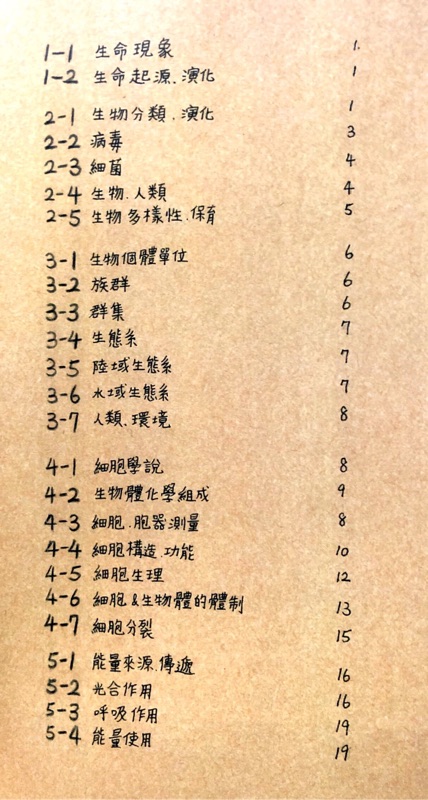 1-1 生命現象 1.
1-2 生命起源.演化 1
2-1 生物分類.演化 1
2-2 病毒 3
2-3 細菌 4
2-4 生物.人類 4
2-5 生物多樣性.保育 5
3-1 生物個體單位 6
3-2 族群 6
3-3 群集 6
3-4 生態系 7
3-5 陸域生態系 7
3-6 水域生態系 7
3-7 人類.環境 8
4-1 細胞學說 8
4-2 生物體化學組成 9
4-3 細胞.胞器測量 8
4-4 細胞構造.功能 10
4-5 細胞生理 12
4-6 細胞&生物體的體制 13
4-7 細胞分裂 15
5-1 能量來源.傳遞 16
5-2 光合作用 16
5-3 呼吸作用 19
5-4 能量使用 19